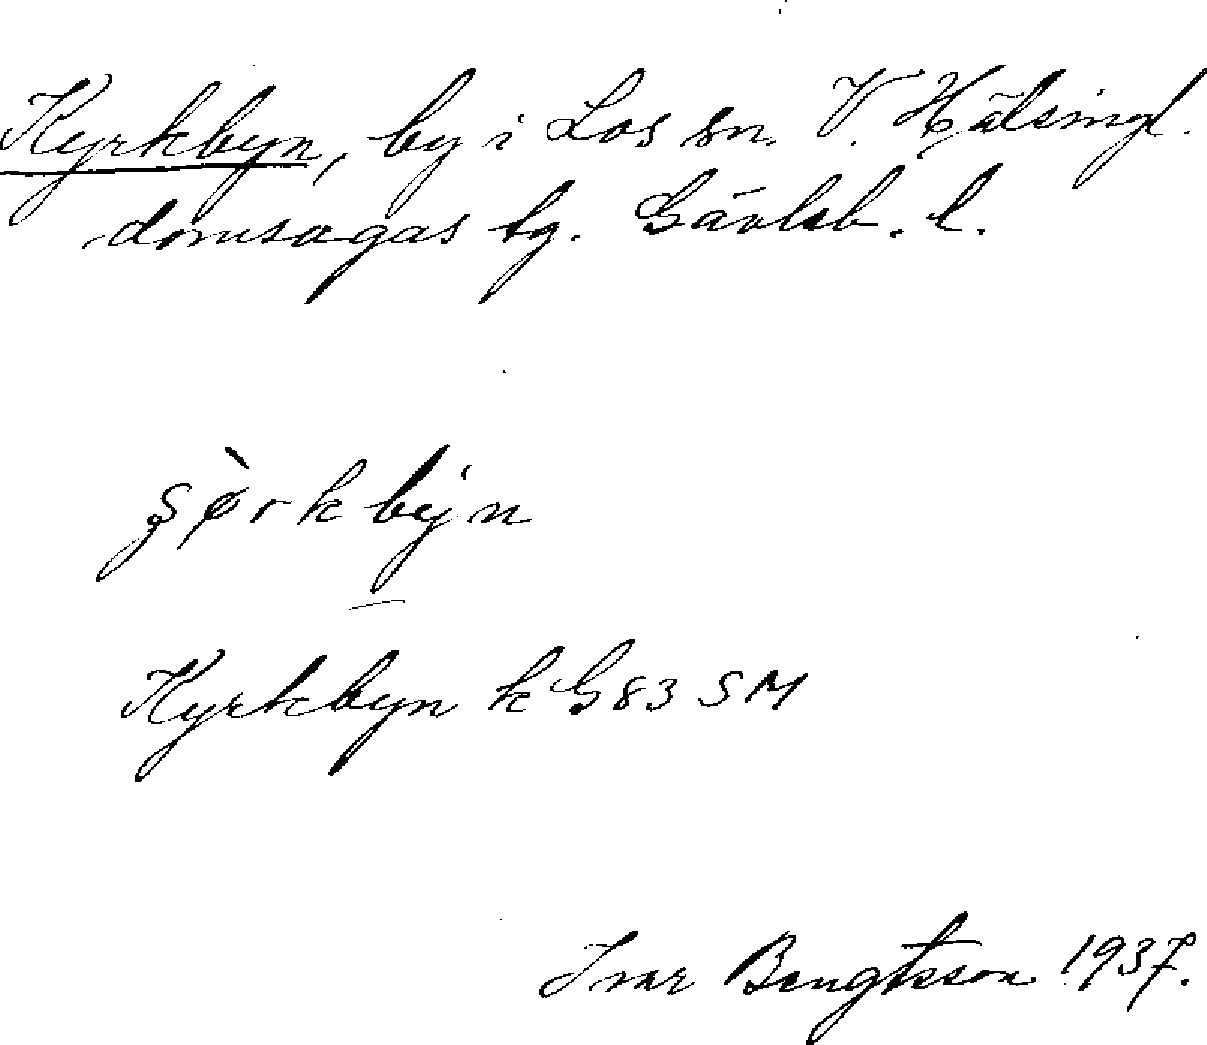 Kyrkbyn, by i Los sn. V. Hälsingl.
domsagas tg. Gävleb. l.
Kyrkbyn k G83 SM
Ivar Bengtsson 1937.